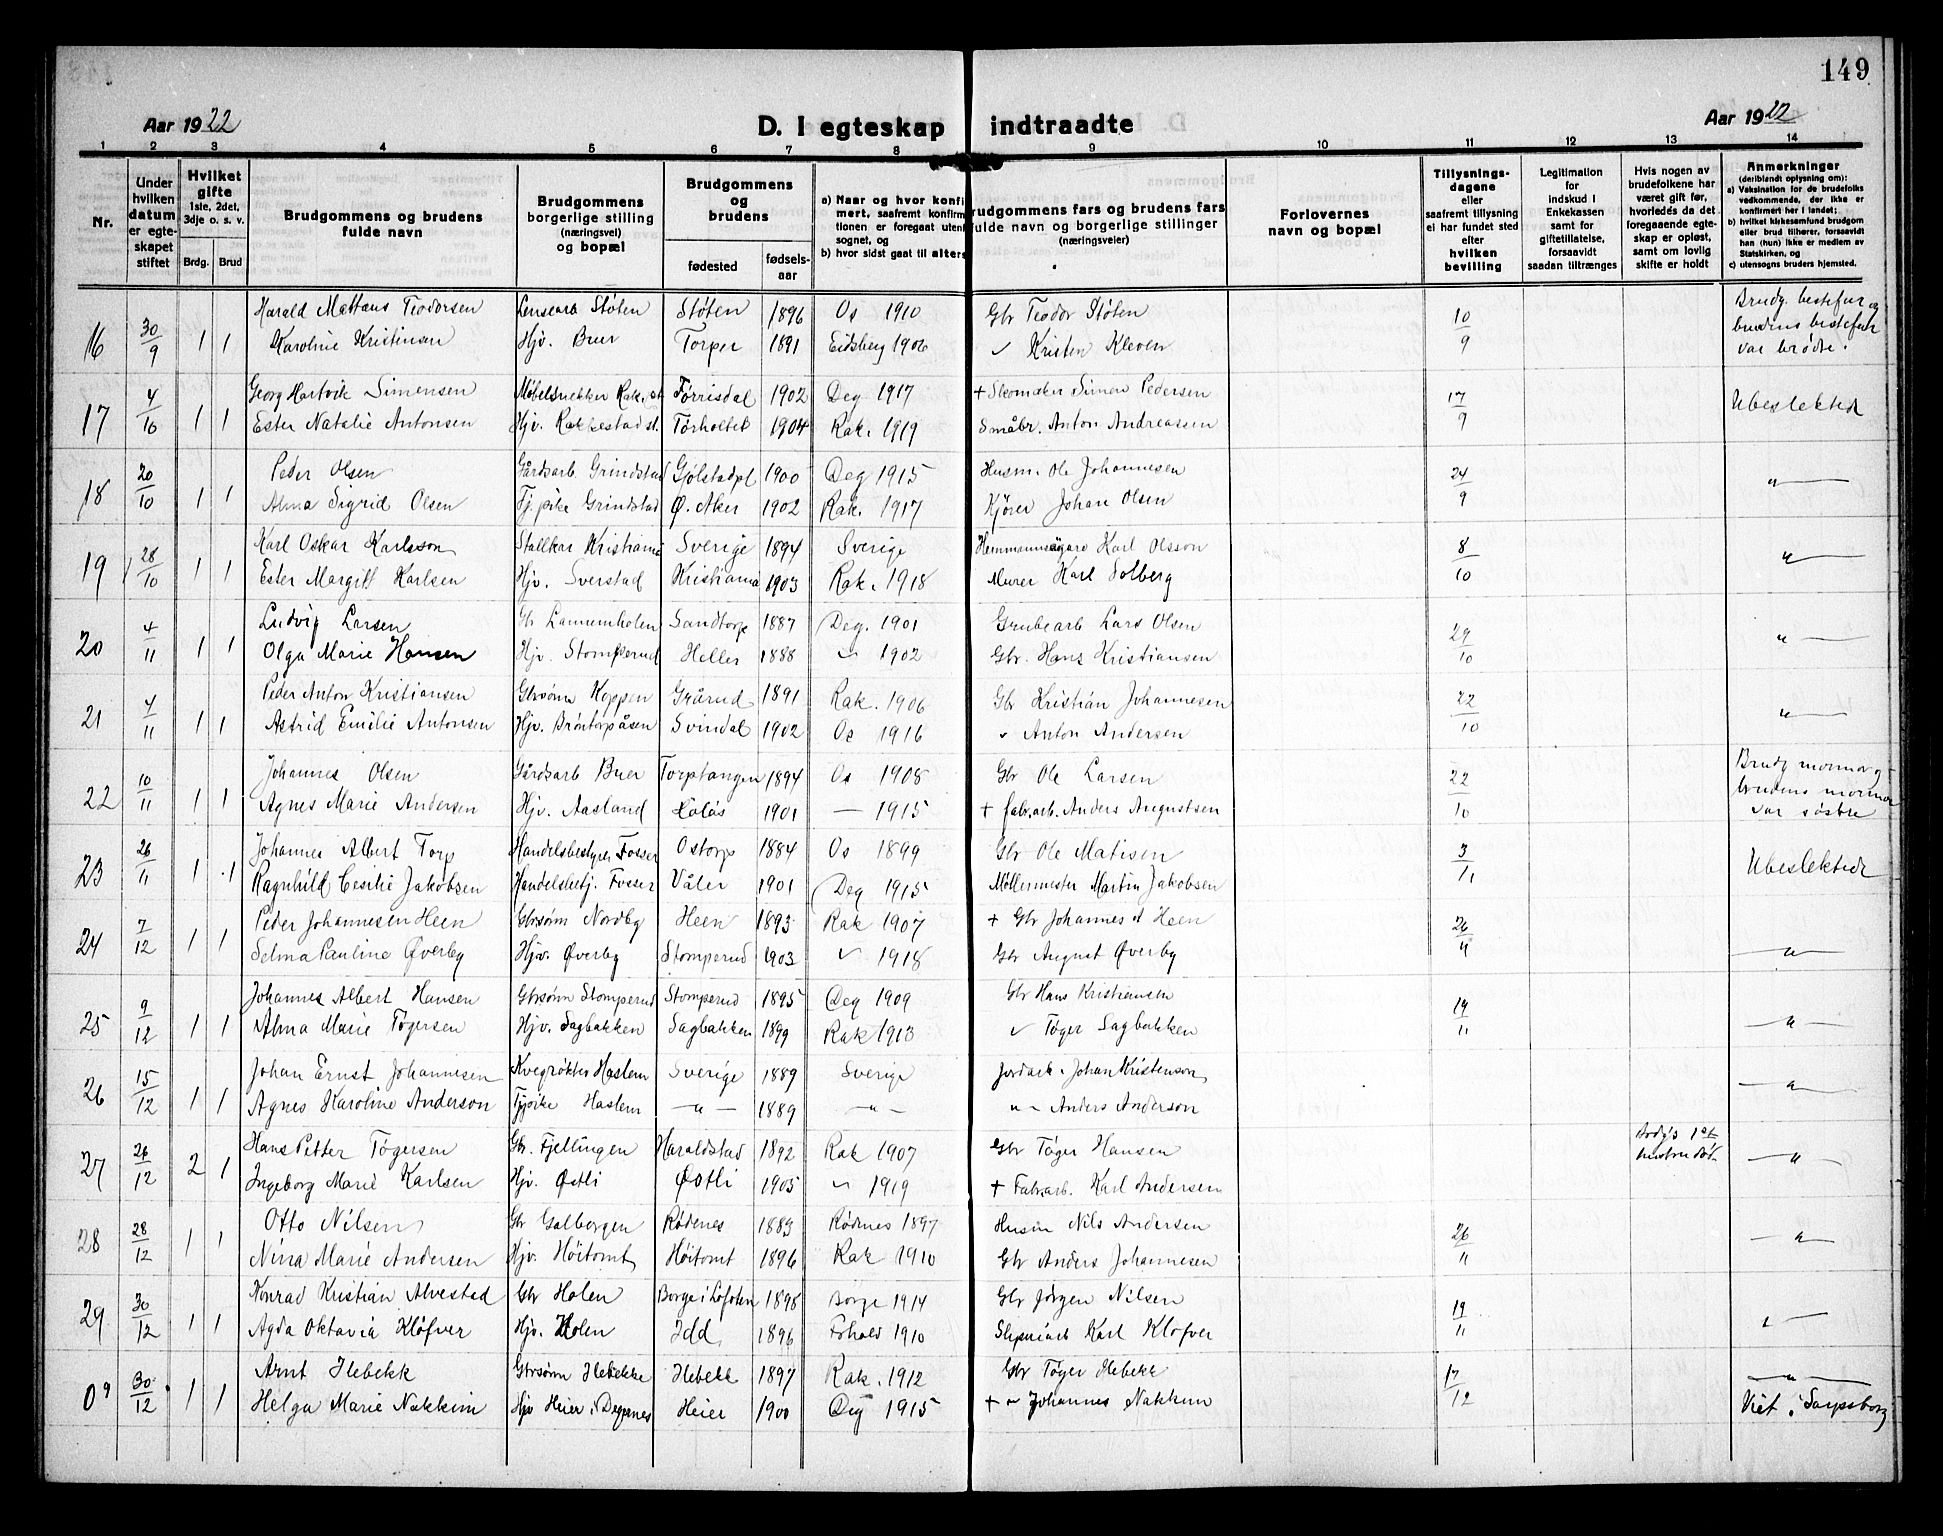 149
Aar 1922
D. I egteskap indtraadte
Aar 1922
1 2 3 4 5 6 7 8 9 10 11 12 13 14
Nr.
Under hvilken datum er egteskapet stiftet
Hvilket gifte 1ste, 2det, 3dje o. s. v.
Brdg. Brud
Brudgommens og brudens fulde navn
Brudgommens borgerlige stilling (næringsvei) og bopæl
Brudgommens og brudens
fødested
fødselsaar
a) Naar og hvor konfi
mert, saafremt konfirm
tionen er foregaat uten
sognet, og
b) hvor sidst gaat til alters
rudgommens fars og brudens fars
fulde navn og borgerlige stillinger
(næringsveier)
Forlovernes navn og bopæl
Tillysningsdagene eller saafremt tillysning ei har fundet sted efter hvilken bevilling
Legitimation for indskud i Enkekassen samt for giftetillatelse, forsaavidt saadan tiltrænges
Hvis nogen av brudefolkene har været gift før, hvorledes da det foregaaende egteskap er opløst, samt om lovlig skifte er holdt
Anmerkninger
(deriblandt oplysning om):
a) Vaksination for de brudefolks vedkommende, der ikke er konfirmert her i landet;
b) hvilket kirkesamfund brudgom eller brud tilhører, forsaavidt han (hun) ikke er medlem av Statskirken, og
c) utensogns bruders hjemsted.
16 30/9 1 1 Harald Mattæus Teodorsen Støten Støten 1896 Os 1910 Gbr Teodor Støten 10/9 Brudg. bestefar og
Karoline Kristensen Hjv. Buer Torper 1891 Eidsberg 1906 " Kristen Kleven brudens bestefar
var brødre.
17 4/10 1 1 Georg Hartvik Simensen Møbelsnekker Rak. st Førrisdal 1902 Deg 1917 + Skomaker Simen Pedersen 17/9 Ubeslektede
Ester Natalie Antonsen Hjv. Rakkestad st. Torholtet 1904 Rak. 1919 Småbr. Anton Andreassen
18 20/10 1 1 Peder Olsen Gårdsarb Grindstad Gjølstadpl 1900 Deg 1915 Husm. Ole Johannesen 24/9 "
Alma Sigrid Olsen Tj. pike Grindstad Ø. Aker 1902 Rak. 1917 Kjører Johan Olsen
19 28/10 1 1 Karl Oskar Karlsson Stallkar Kristiania Sverige 1894 Sverige Hemmansägare Karl Olsson 8/10 "
Ester Margitt Karlsen Hjv. Sverstad Kristiania 1903 Rak. 1918 Murer Karl Solberg
20 4/11 1 1 Ludvig Larsen Gbr Lannemholen Sandtorp 1887 Deg. 1901 Grubearb Lars Olsen 29/10 "
Olga Marie Hansen Hjv. Stomperud Heller 1888 " 1902 Gbr. Hans Kristiansen
21 4/11 1 1 Peder Anton Kristiansen Gbrsønn Koppen Grårud 1891 Rak. 1906 Gbr Kristian Johannesen 22/10 "
Astrid Emilie Antonsen Hjv. Brøntorpåsen Svindal 1902 Os 1916 " Anton Andersen
22 10/11 1 1 Johannes Olsen Gårdsarb Buer Torptangen 1894 Os 1908 Gbr Ole Larsen 22/10 Brudg mormor og
Agnes Marie Andersen Hjv. Aasland 1901 — 1915 + fabr.arb. Anders Augustsen brudens mormor
var søstre
23 26/11 1 1 Johannes Albert Torp Handelsbestyrer Fosser Ostorp 1884 Os 1899 Gbr Ole Matisen 3/11 Ubeslektede
Ragnhild Cesilie Jakobsen Handelsbetj. Fosser Våler 1901 Deg 1915 Møllermester Martin Jakobsen
24 7/12 1 1 Peder Johannesen Heen Gbrsønn Nordby Heen 1893 Rak 1907 + Gbr Johannes Heen 26/11 "
Selma Pauline Øverby Hjv. Øverby Stomperud 1903 " 1918 Gbr August Øverby
25 9/12 1 1 Johannes Albert Hansen Gbrsønn Stomperud Stomperud 1895 Deg 1909 Gbr Hans Kristiansen 19/11 "
Alma Marie Tøgersen Hjv. Sagbakken Sagbakken 1899 Rak 1913 " Tøger Sagbakken
26 15/12 1 1 Johan Ernst Johannesen Kvegrøkter Haslem Sverige 1889 Sverige Jordark. Johan Kristenson "
Agnes Karoline Anderson Tjpike Haslem " 1889 " " Anders Anderson
27 26/12 2 1 Hans Petter Tøgersen Gbr. Fjellingen Haraldstad 1892 Rak 1907 Gbr Tøger Hansen Brdg's 1st hustru død. "
Ingeborg Marie Karlsen Hjv. Østli Østli 1905 " 1919 + Fabr.arb. Karl Andersen
28 28/12 1 1 Otto Nilsen Gbr Galborgen Rødenes 1883 Rødnes 1897 Husm Nils Andersen 26/11 "
Nina Marie Andersen Hjv. Høitomt Høitomt 1896 Rak 1910 Gbr Anders Johannesen
29 30/12 1 1 Konrad Kristian Alvestad Gbr Holen Borge i Lofoten 1898 Borge 1914 Gbr Jørgen Nilsen 19/11 "
Agda Oktavia Kløfver Hjv. Holen Idd 1896 1910 Karl Kløfver
30/12 1 1 Arnt Hebekk Gbrsønn Hebekke Hebekk 1897 Rak. 1912 Gbr Tøger Hebekk 17/12 "
Helga Marie Nakkim Hjv Heier i Degernes Heier 1900 Deg 1915 + " Johannes Nakkim Viet i Sarpsborg